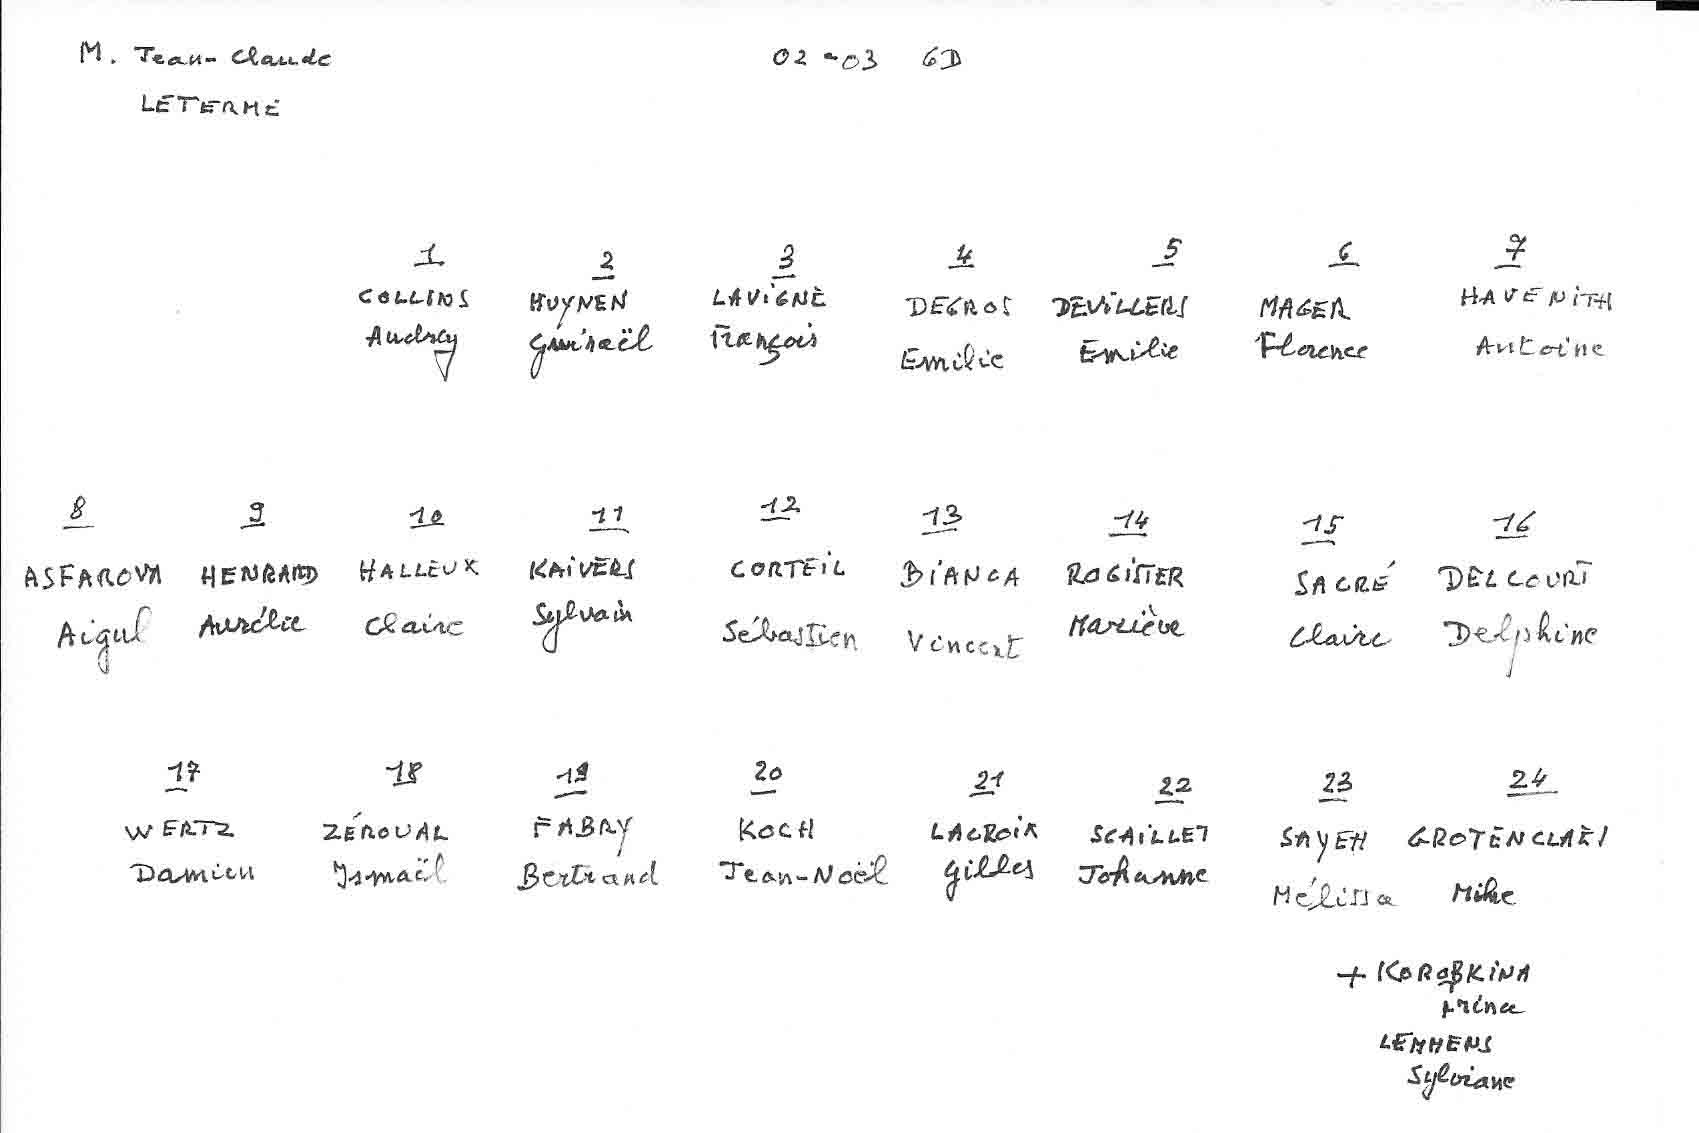 M. Jean-Claude 02-03 6D
LETERME
1 2 3 4 5 6 7
COLLINS HUYNEN LAVIGNE DEGROS DEVILLERS MAGER HAVENITH
Audrey Gwénaël François Emilie Emilie Florence Antoine
8 9 10 11 12 13 14 15 16
ASFAROVA HENRARD HALLEUX KAIVERS CORTEIL BIANCA ROGISTER SACRÉ DELCOURT
Aigul Aurélie Claire Sylvain Sébastien Vincent Mariève Claire Delphine
17 18 19 20 21 22 23 24
WERTZ ZÉROUAL FABRY KOCH LACROIX SCAILLET SAYEH GROTENCLAES
Damien Ismaël Bertrand Jean-Noël Gilles Johanne Mélissa Mike
+ KOROBKINA
Irina
LEMMENS
Sylviane